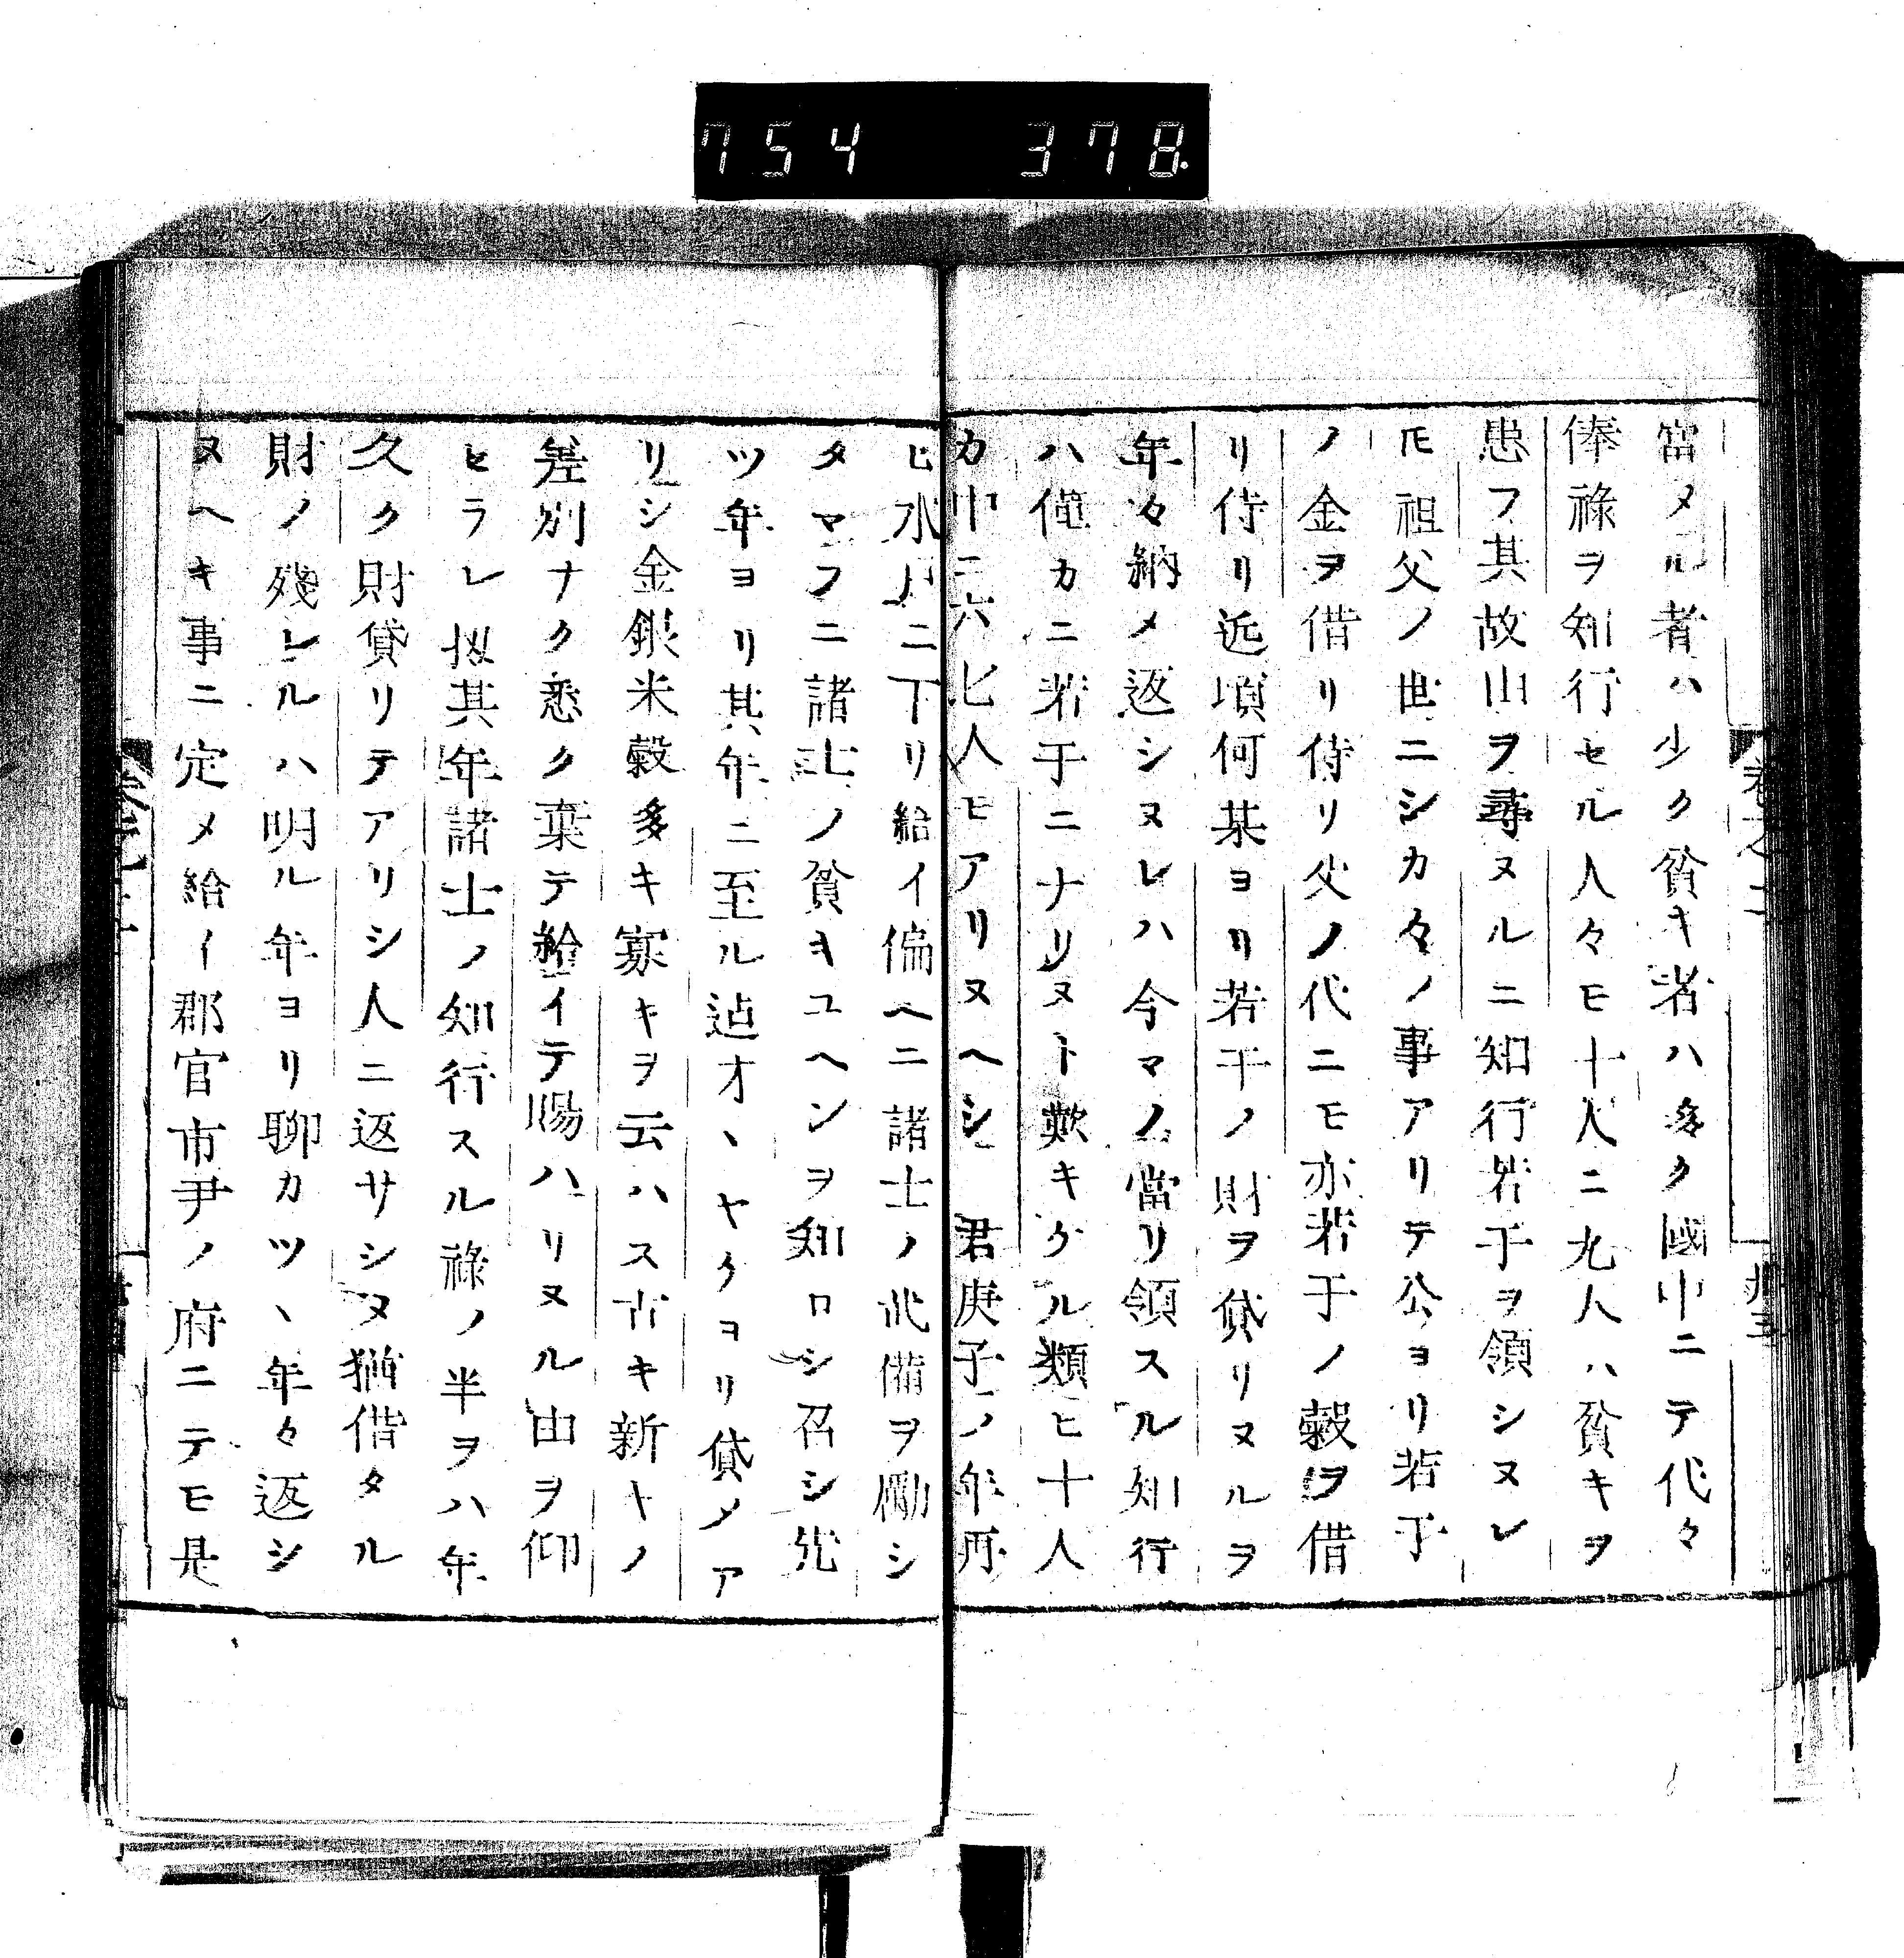 754 378
富メル者ハ少ク貧キ者ハ多ク國中ニテ代々
俸祿ヲ知行セル人々モ十人ニ九人ハ貧キヲ
患フ其故由ヲ尋ヌルニ知行若干ヲ領シヌレ
𪜈祖父ノ世ニシカ々ノ事アリテ公ヨリ若干
ノ金ヲ借リ侍リ父ノ代ニモ亦若干ノ穀ヲ借
リ侍リ近頃何某ヨリ若干ノ財ヲ貸リヌルヲ
年々納メ返シヌレハ今マノ當リ領スル知行
ハ僅カニ若干ニナリヌト歎キケル類ヒ十人
カ中ニ六七人モアリヌヘシ 君庚子ノ年再
ヒ水戸ニ下リ給イ偏ヘニ諸士ノ武備ヲ勵シ
タマフニ諸士ノ貧キユヘンヲ知ロシ召シ先
ツ年ヨリ其年ニ至ル迠オヽヤケヨリ貸ノア
リシ金銀米穀多キ寡キヲ云ハス古キ新ヤノ
差別ナク悉ク棄テ給イテ賜ハリヌル由ヲ仰
セラレ扨其年諸士ノ知行スル祿ノ半ヲハ年
久ク財貸リテアリシ人ニ返サシヌ猶借タル
財ノ殘レルハ明ル年ヨリ聊カツヽ年々返シ
ヌヘキ事ニ定メ給イ郡官市尹ノ府ニテモ是